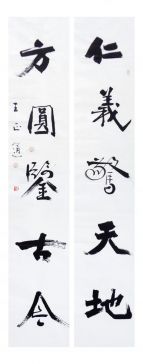 仁義驚天地
方圓鑒古今